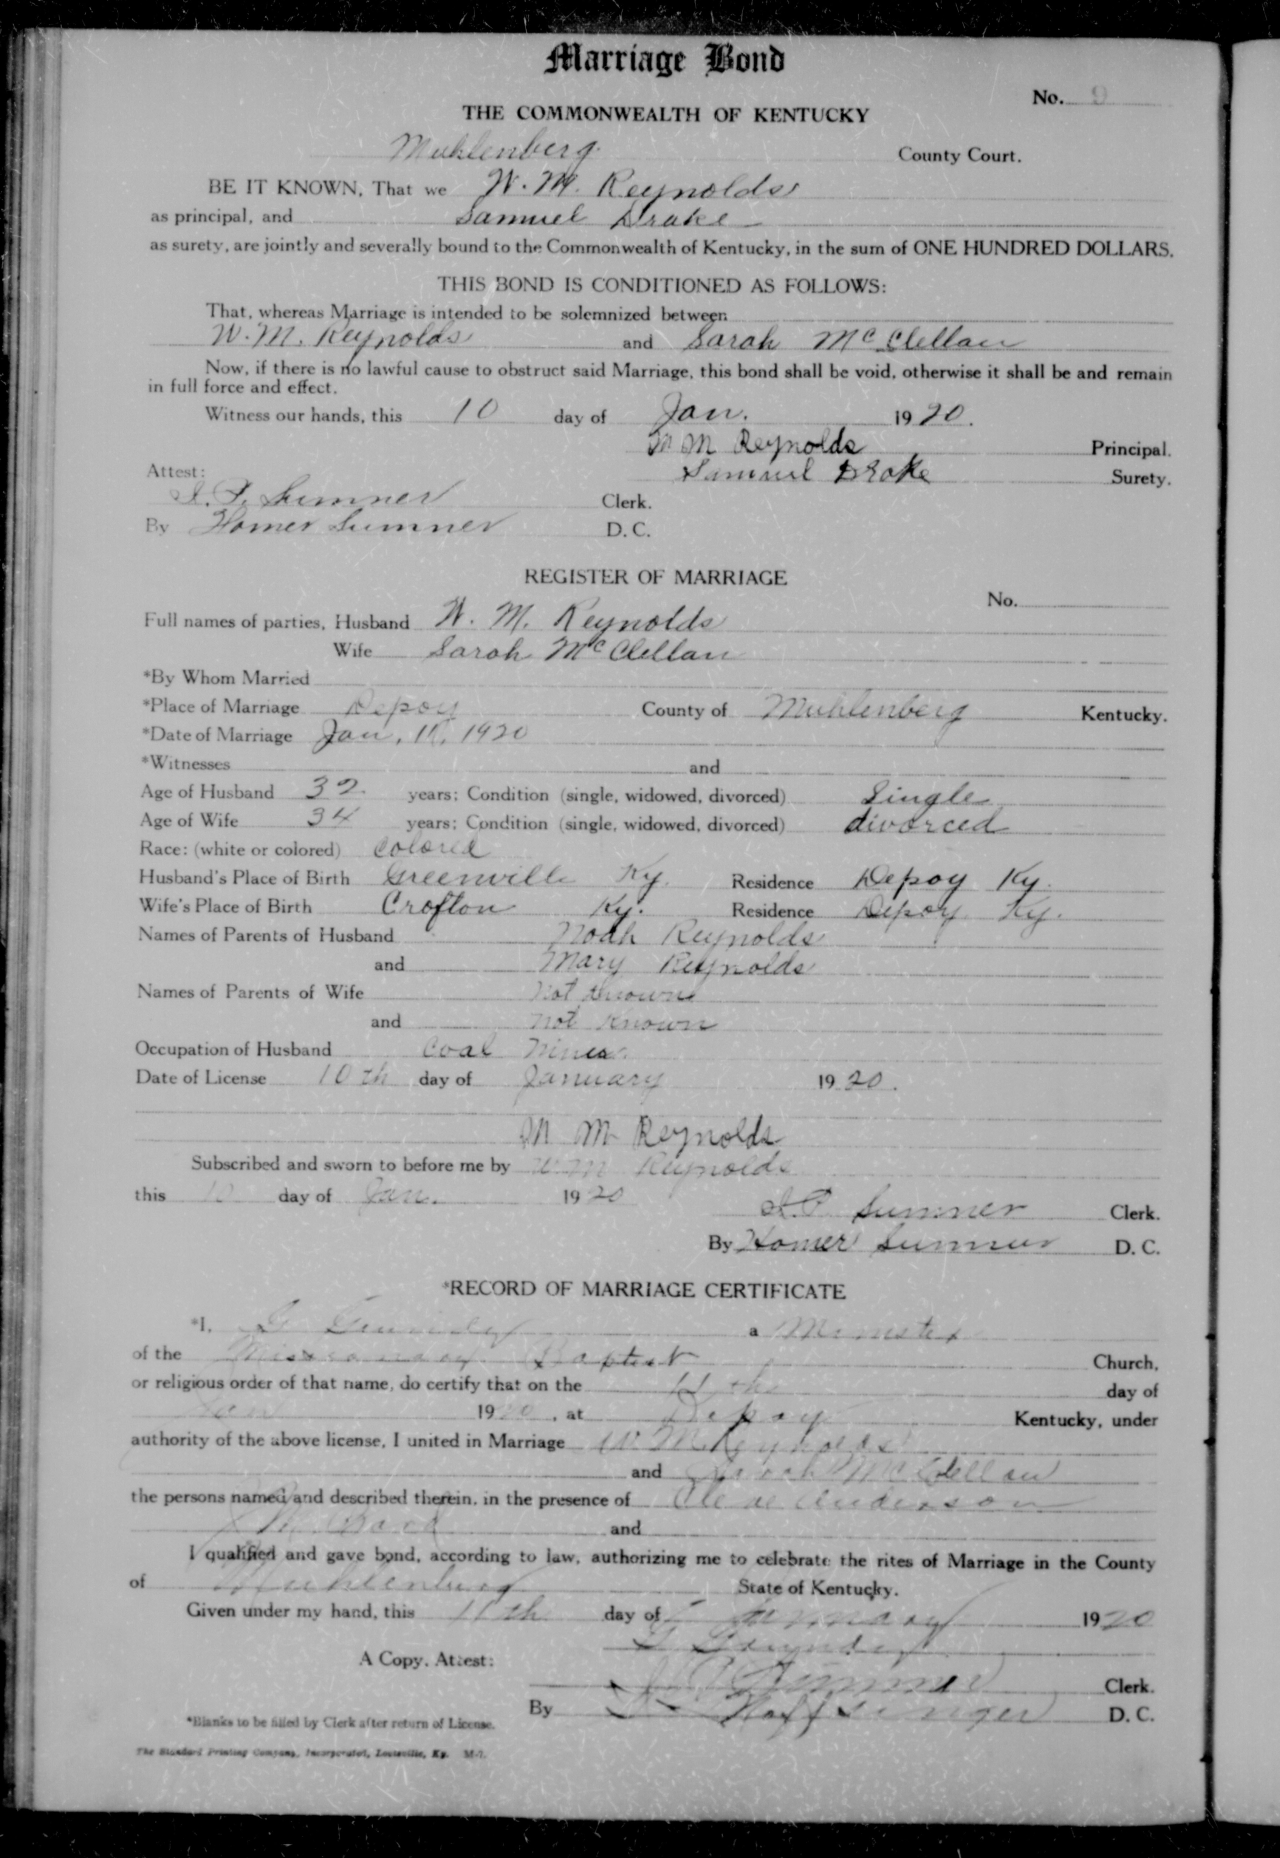 Marriage Bond
No. 9
THE COMMONWEALTH OF KENTUCKY
Muhlenberg County Court.
BE IT KNOWN, That we W. M. Reynolds
as principal, and Samuel Drake
as surety, are jointly and severally bound to the Commonwealth of Kentucky, in the sum of ONE HUNDRED DOLLARS.
THIS BOND IS CONDITIONED AS FOLLOWS:
That, whereas Marriage is intended to be solemnized between
W. M. Reynolds and Sarah McClellan
Now, if there is no lawful cause to obstruct said Marriage, this bond shall be void, otherwise it shall be and remain
in full force and effect.
Witness our hands, this 10 day of Jan. 1920.
W M Reynolds Principal.
Samuel Drake Surety.
Attest:
Sumner Clerk.
By Homer Sumner D. C.
REGISTER OF MARRIAGE
No.
Full names of parties, Husband W. M. Reynolds
Wife Sarah McClellan
*By Whom Married
*Place of Marriage Depoy County of Muhlenberg Kentucky.
*Date of Marriage Jan, 11, 1920
*Witnesses and
Age of Husband 32 years; Condition (single, widowed, divorced) Single
Age of Wife 34 years; Condition (single, widowed, divorced) divorced
Race: (white or colored) Colored
Husband's Place of Birth Greenville Ky. Residence Depoy Ky.
Wife's Place of Birth Crofton Ky. Residence Depoy Ky.
Names of Parents of Husband Noah Reynolds
and Mary Reynolds
Names of Parents of Wife Not known
and Not Known
Occupation of Husband Coal Miner
Date of License 10th day of January 1920.
W M Reynolds
Subscribed and sworn to before me by W M Reynolds
this 10 day of Jan. 1920
Sumner Clerk.
By Homer Sumner D. C.
*RECORD OF MARRIAGE CERTIFICATE
*I, G a Minister
of the Missionary Baptist Church,
or religious order of that name, do certify that on the 11 th day of
Jan 1920, at Depoy Kentucky, under
authority of the above license, I united in Marriage W M Reynolds
and Sarah McClellan
the persons named and described therein, in the presence of Anderson
and
I qualified and gave bond, according to law, authorizing me to celebrate the rites of Marriage in the County
of Muhlenburg State of Kentucky.
Given under my hand, this 11th day of January 1920
G
A Copy, Attest:
Sumner Clerk.
By Noffsinger D. C.
*Blanks to be filled by Clerk after return of License.
The Standard Printing Company, Incorporated, Louisville, Ky. M-7.